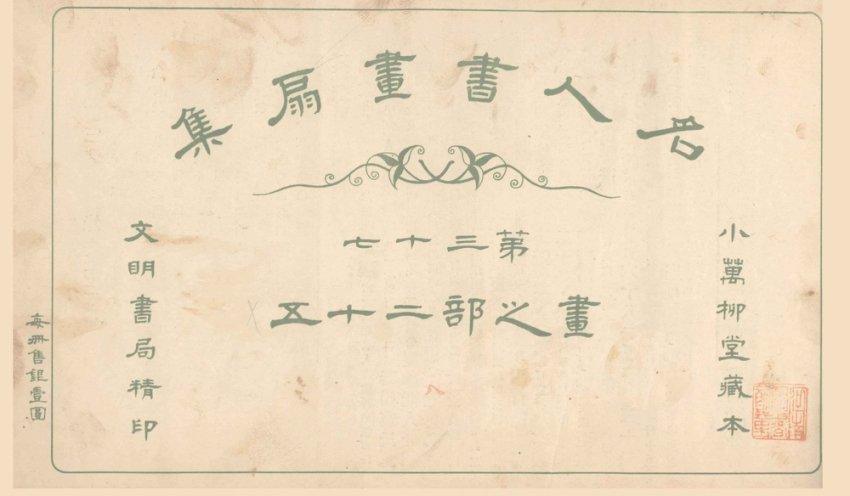 名人書畫扇集
第三十七
畫之部二十五
小萬柳堂藏本
文明書局精印
每冊售銀壹圓